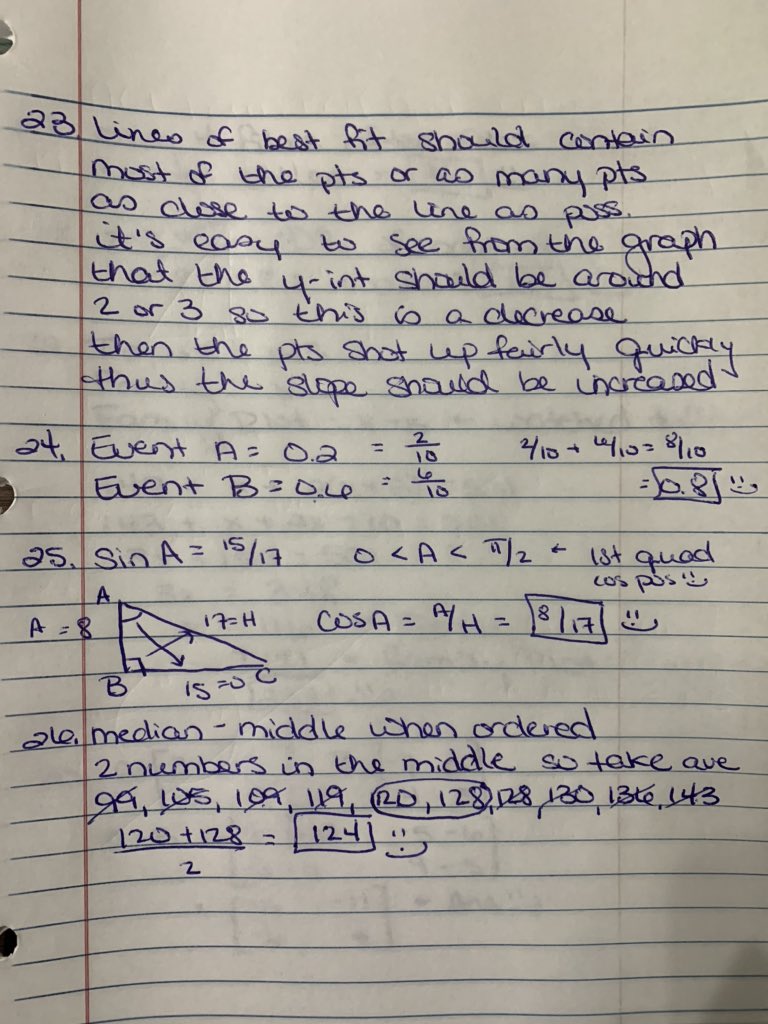 23 lines of best fit should contain
most of the pts or as many pts
as close to the line as poss.
it's easy to see from the graph
that the y-int should be around
2 or 3 so this is a decrease
then the pts shot up fairly quickly
thus the slope should be increased
24. Event A = 0.2 = 2/10 2/10 + 6/10 = 8/10
Event B = 0.6 = 6/10 = 0.8 :)
25. Sin A = 15/17 0 < A < π/2 ← 1st quad
cos pos :)
A
A = 8 17=H cos A = A/H = 8/17 :)
B 15=O C
26. median - middle when ordered
2 numbers in the middle so take ave
99, 105, 109, 119, 120, 128, 128, 130, 136, 143
120 + 128 / 2 = 124 :)